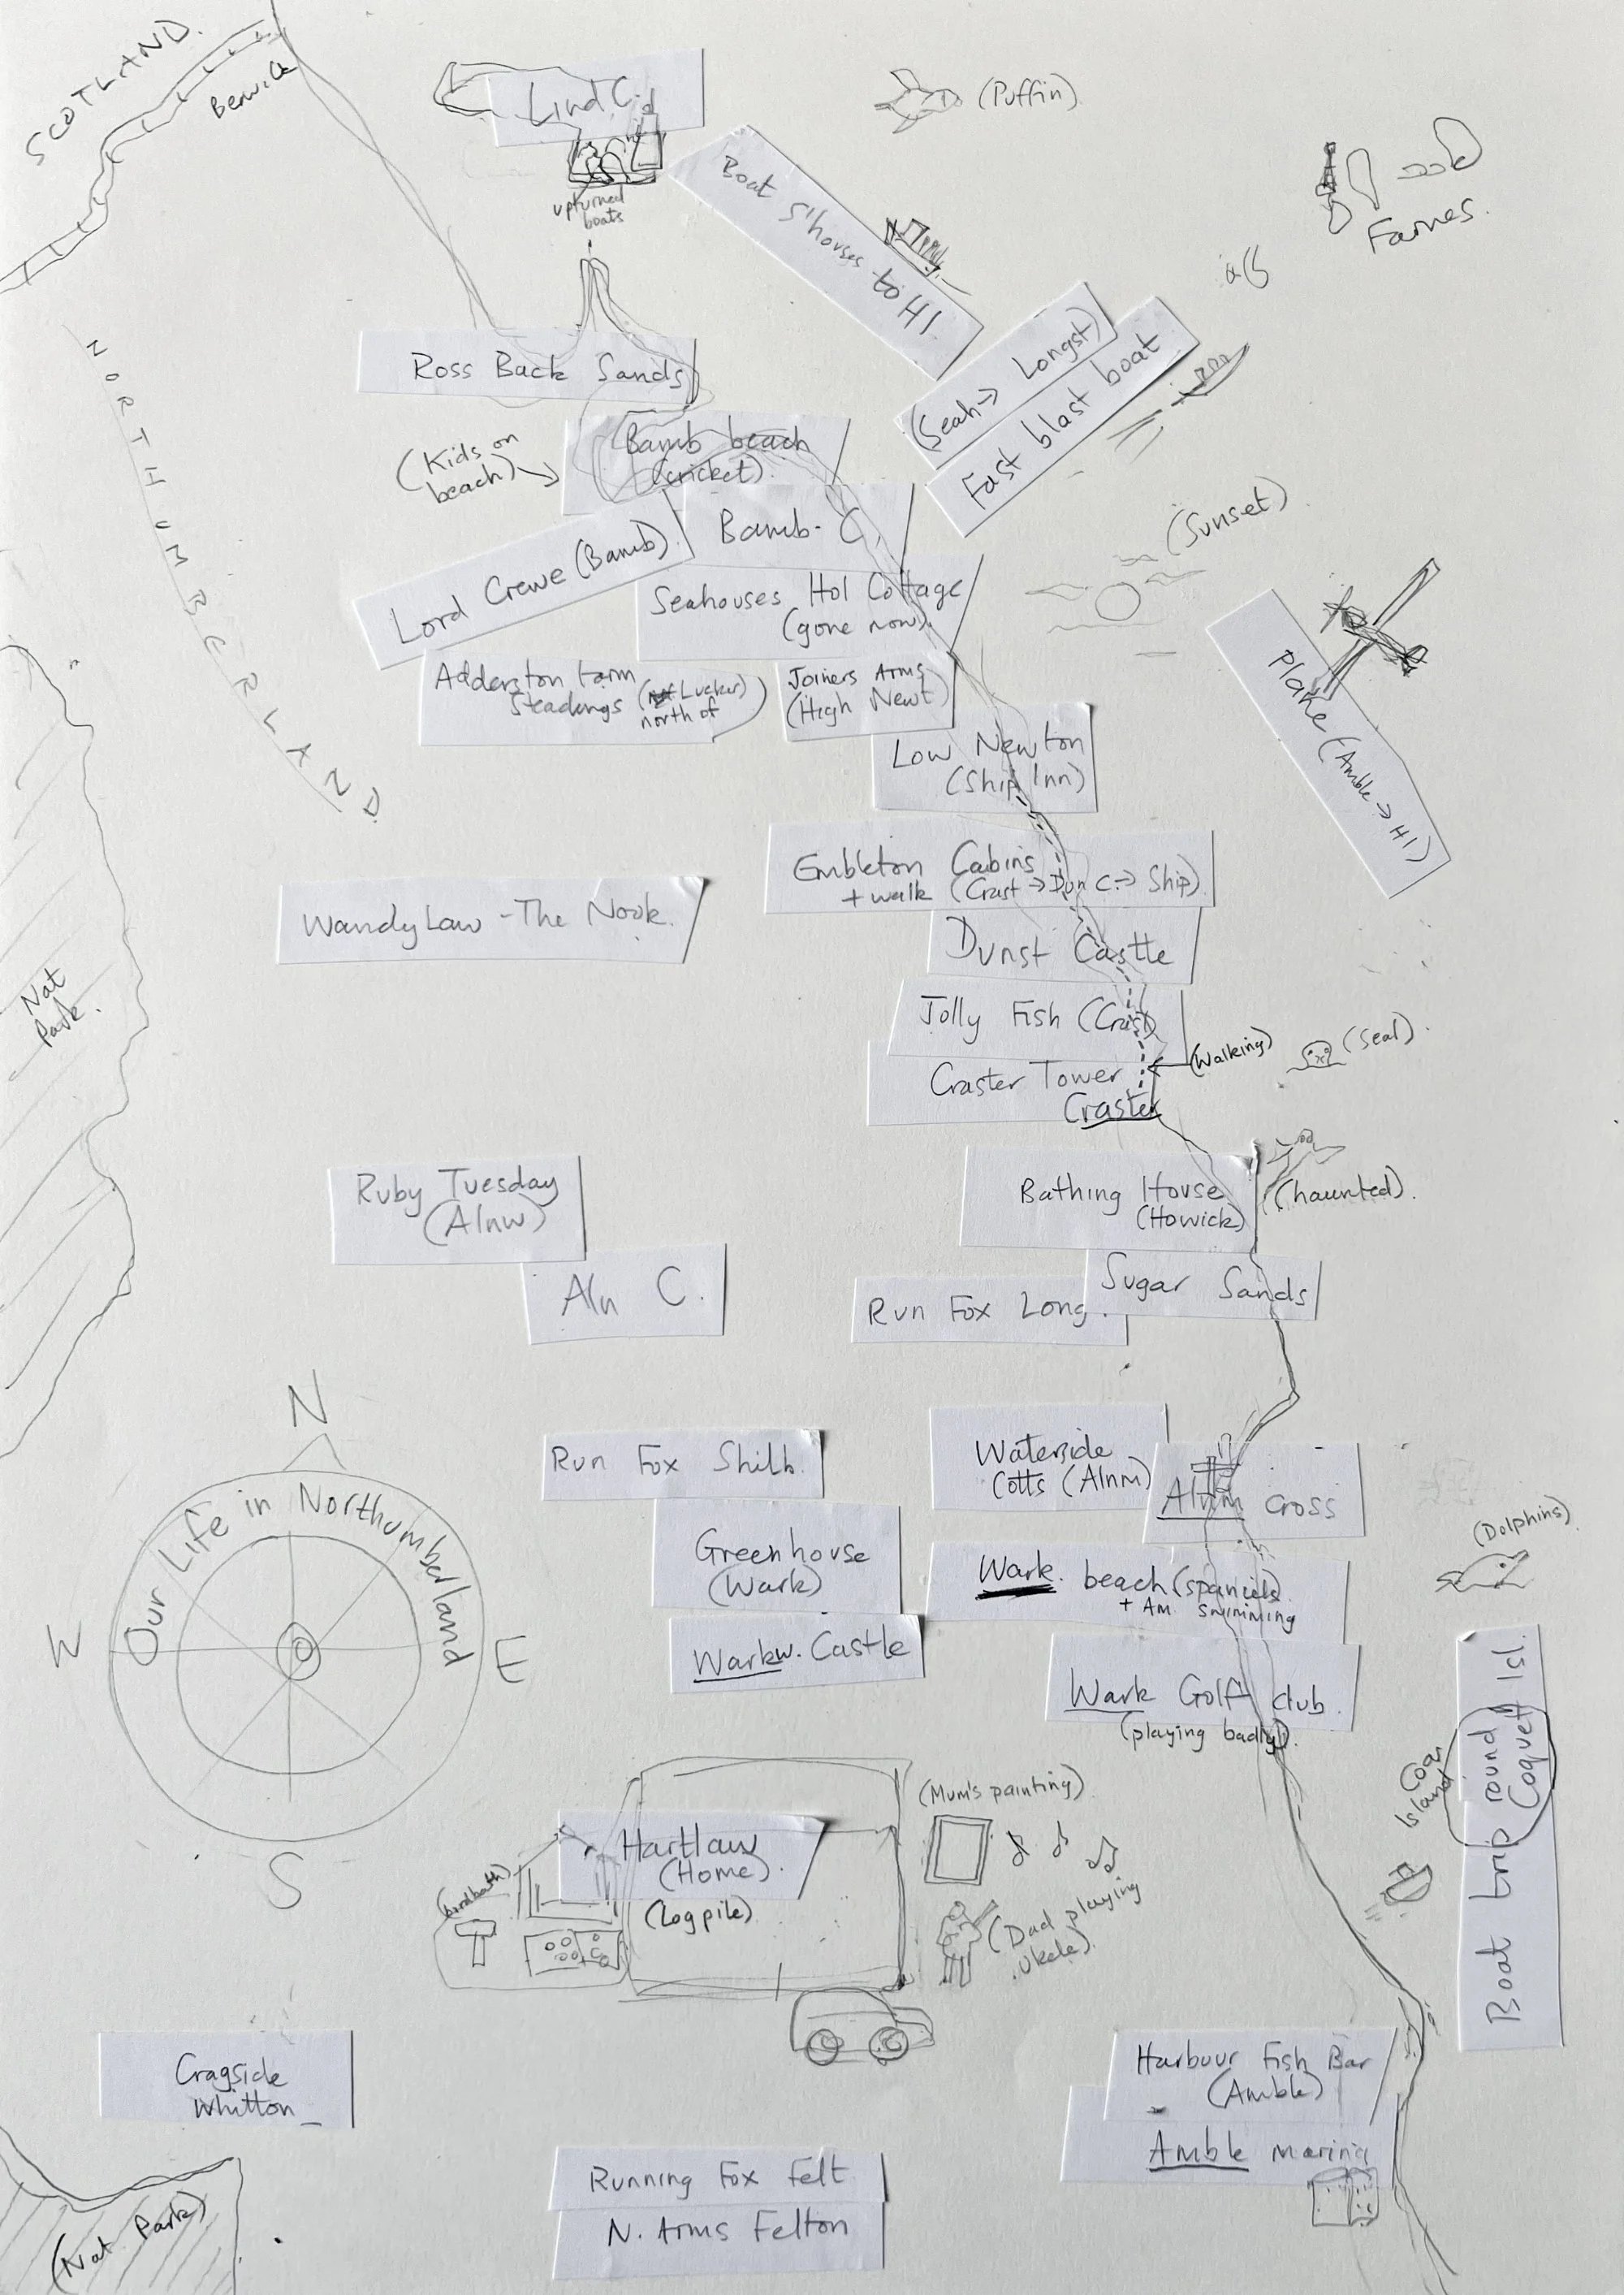 SCOTLAND.
Berwick
Lind C.
upturned
boats
(Puffin)
Farnes.
Boat S'houses to HI
(Seah → Longst)
Fast blast boat
NORTHUMBERLAND
Ross Back Sands
(Kids on
beach)
Bamb beach
(cricket).
Bamb. C.
Lord Crewe (Bamb).
(Sunset)
Seahouses Hol Cottage
(gone now).
Adderston farm
Steadings (Lucker)
north of
Joiners Arms
(High Newt)
Plane (Amble → HI)
Low Newton
(Ship Inn)
Embleton Cabins
+ walk (Crast → Dun C → Ship).
Wandy Law - The Nook.
Dunst Castle
Nat
Park.
Jolly Fish (Crast)
(Walking)
(Seal).
Craster Tower
Craster
Ruby Tuesday
(Alnw)
Bathing House
(Howick)
(haunted).
Aln C.
Run Fox Long.
Sugar Sands
N
Our Life in Northumberland
W
E
S
Run Fox Shilb.
Waterside
Cotts (Alnm)
Alnm cross
Greenhouse
(Wark)
Wark. beach (spaniels)
+ Am. swimming
(Dolphins).
Warkw. Castle
Wark Golf club.
(playing badly).
Boat trip round Coquet Isl.
Coq
Island
(Mum's painting)
Hartlaw
(Home).
(Logpile)
(birdbath)
(Dad playing
ukele).
Cragside
Whitton
Harbour Fish Bar
(Amble)
Amble marina
Running Fox Felt
N. Arms Felton
(Nat Park)